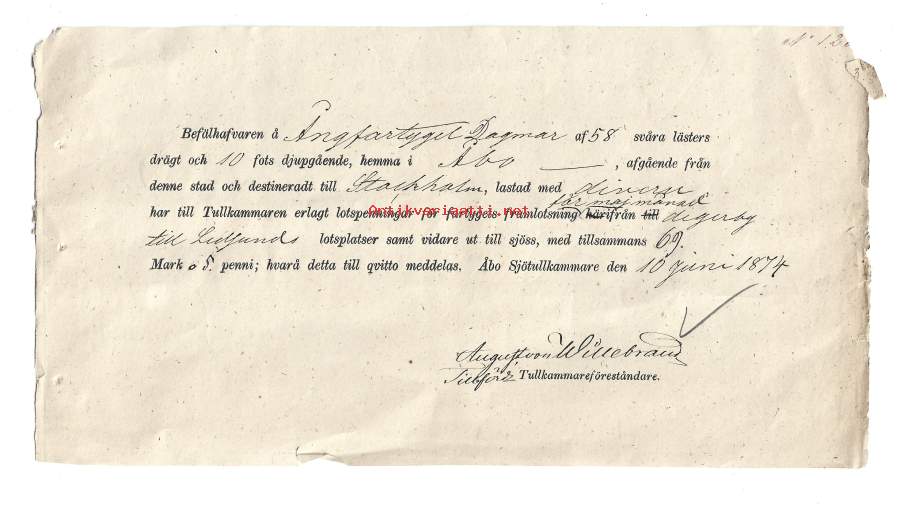 N° 12
Befälhafvaren å Ångfartyget Dagmar af 58 svåra lästers
drägt och 10 fots djupgående, hemma i Åbo, afgående från
denne stad och destineradt till Stockholm, lastad med diverse
för maj månad
har till Tullkammaren erlagt lotspenningar för fartygets framlotsning härifrån till degerby
Antikvariaatti.net
till Lidsunds lotsplatser samt vidare ut till sjöss, med tillsammans 69.
Mark o 8. penni; hvarå detta till qvitto meddelas. Åbo Sjötullkammare den 10 juni 1874
August von Willebrand
Tullkammareföreståndare.